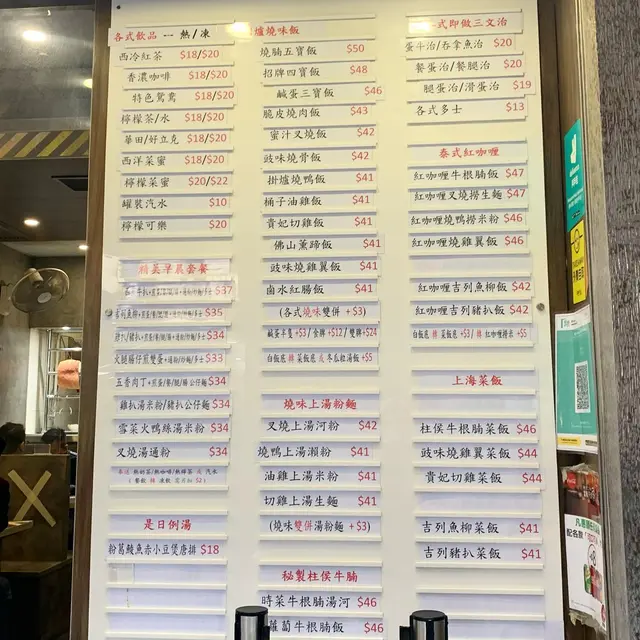 各式飲品 一 熱/凍
西冷紅茶 $18/$20
香濃咖啡 $18/$20
特色鴛鴦 $18/$20
檸檬茶/水 $18/$20
華田/好立克 $18/$20
西洋菜蜜 $18/$20
檸檬菜蜜 $20/$22
罐裝汽水 $10
檸檬可樂 $20
精英早晨套餐
$37
$35
$34
火腿腸仔煎雙蛋 $33
五香肉丁 $34
雞扒湯米粉/豬扒公仔麵 $34
雪菜火鴨絲湯米粉 $34
叉燒湯通粉 $34
是日例湯
粉葛鯪魚赤小豆煲唐排 $18
爐燒味飯
燒腩五寶飯 $50
招牌四寶飯 $48
鹹蛋三寶飯 $46
脆皮燒肉飯 $43
蜜汁叉燒飯 $42
豉味燒骨飯 $42
掛爐燒鴨飯 $41
桶子油雞飯 $41
貴妃切雞飯 $41
佛山薰蹄飯 $41
豉味燒雞翼飯 $41
鹵水紅腸飯 $41
(各式燒味雙併 +$3)
鹹蛋半隻+$3/金牌+$12/雙牌+$24
白飯底 轉 菜飯底 或 冬瓜粒湯飯 +$5
燒味上湯粉麵
叉燒上湯河粉 $42
燒鴨上湯瀨粉 $41
油雞上湯米粉 $41
切雞上湯生麵 $41
(燒味雙併湯粉麵 +$3)
秘製柱侯牛腩
時菜牛根腩湯河 $46
蘿蔔牛根腩飯 $46
式即做三文治
蛋牛治/吞拿魚治 $20
餐蛋治/餐腿治 $20
腿蛋治/滑蛋治 $19
各式多士 $13
泰式紅咖喱
紅咖喱牛根腩飯 $47
紅咖喱叉燒撈生麵 $47
紅咖喱燒鴨撈米粉 $46
紅咖喱燒雞飯 $46
紅咖喱吉列魚柳飯 $42
紅咖喱吉列豬扒飯 $42
白飯底 轉 菜飯底 +$3/ 轉 紅咖喱撈米 +$5
上海菜飯
柱侯牛根腩菜飯 $46
豉味燒雞翼菜飯 $44
貴妃切雞菜飯 $44
吉列魚柳菜飯 $41
吉列豬扒菜飯 $41